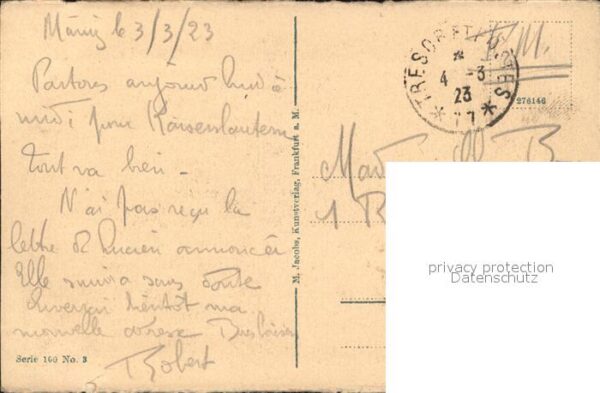 le 3/3/23
Partons aujourd'hui à
midi pour Kaiserslautern
Tout va bien -
N'ai pas reçu la
lettre de Lucien annoncée
Elle suivra sans doute
bientôt ma
nouvelle adresse
Robert
Serie 166 No. 3
M. Jacobs, Kunstverlag, Frankfurt a. M.
TRESOR ET POSTES
4 -3
23
* 77 *
F.M.
276146
1
privacy protection
Datenschutz